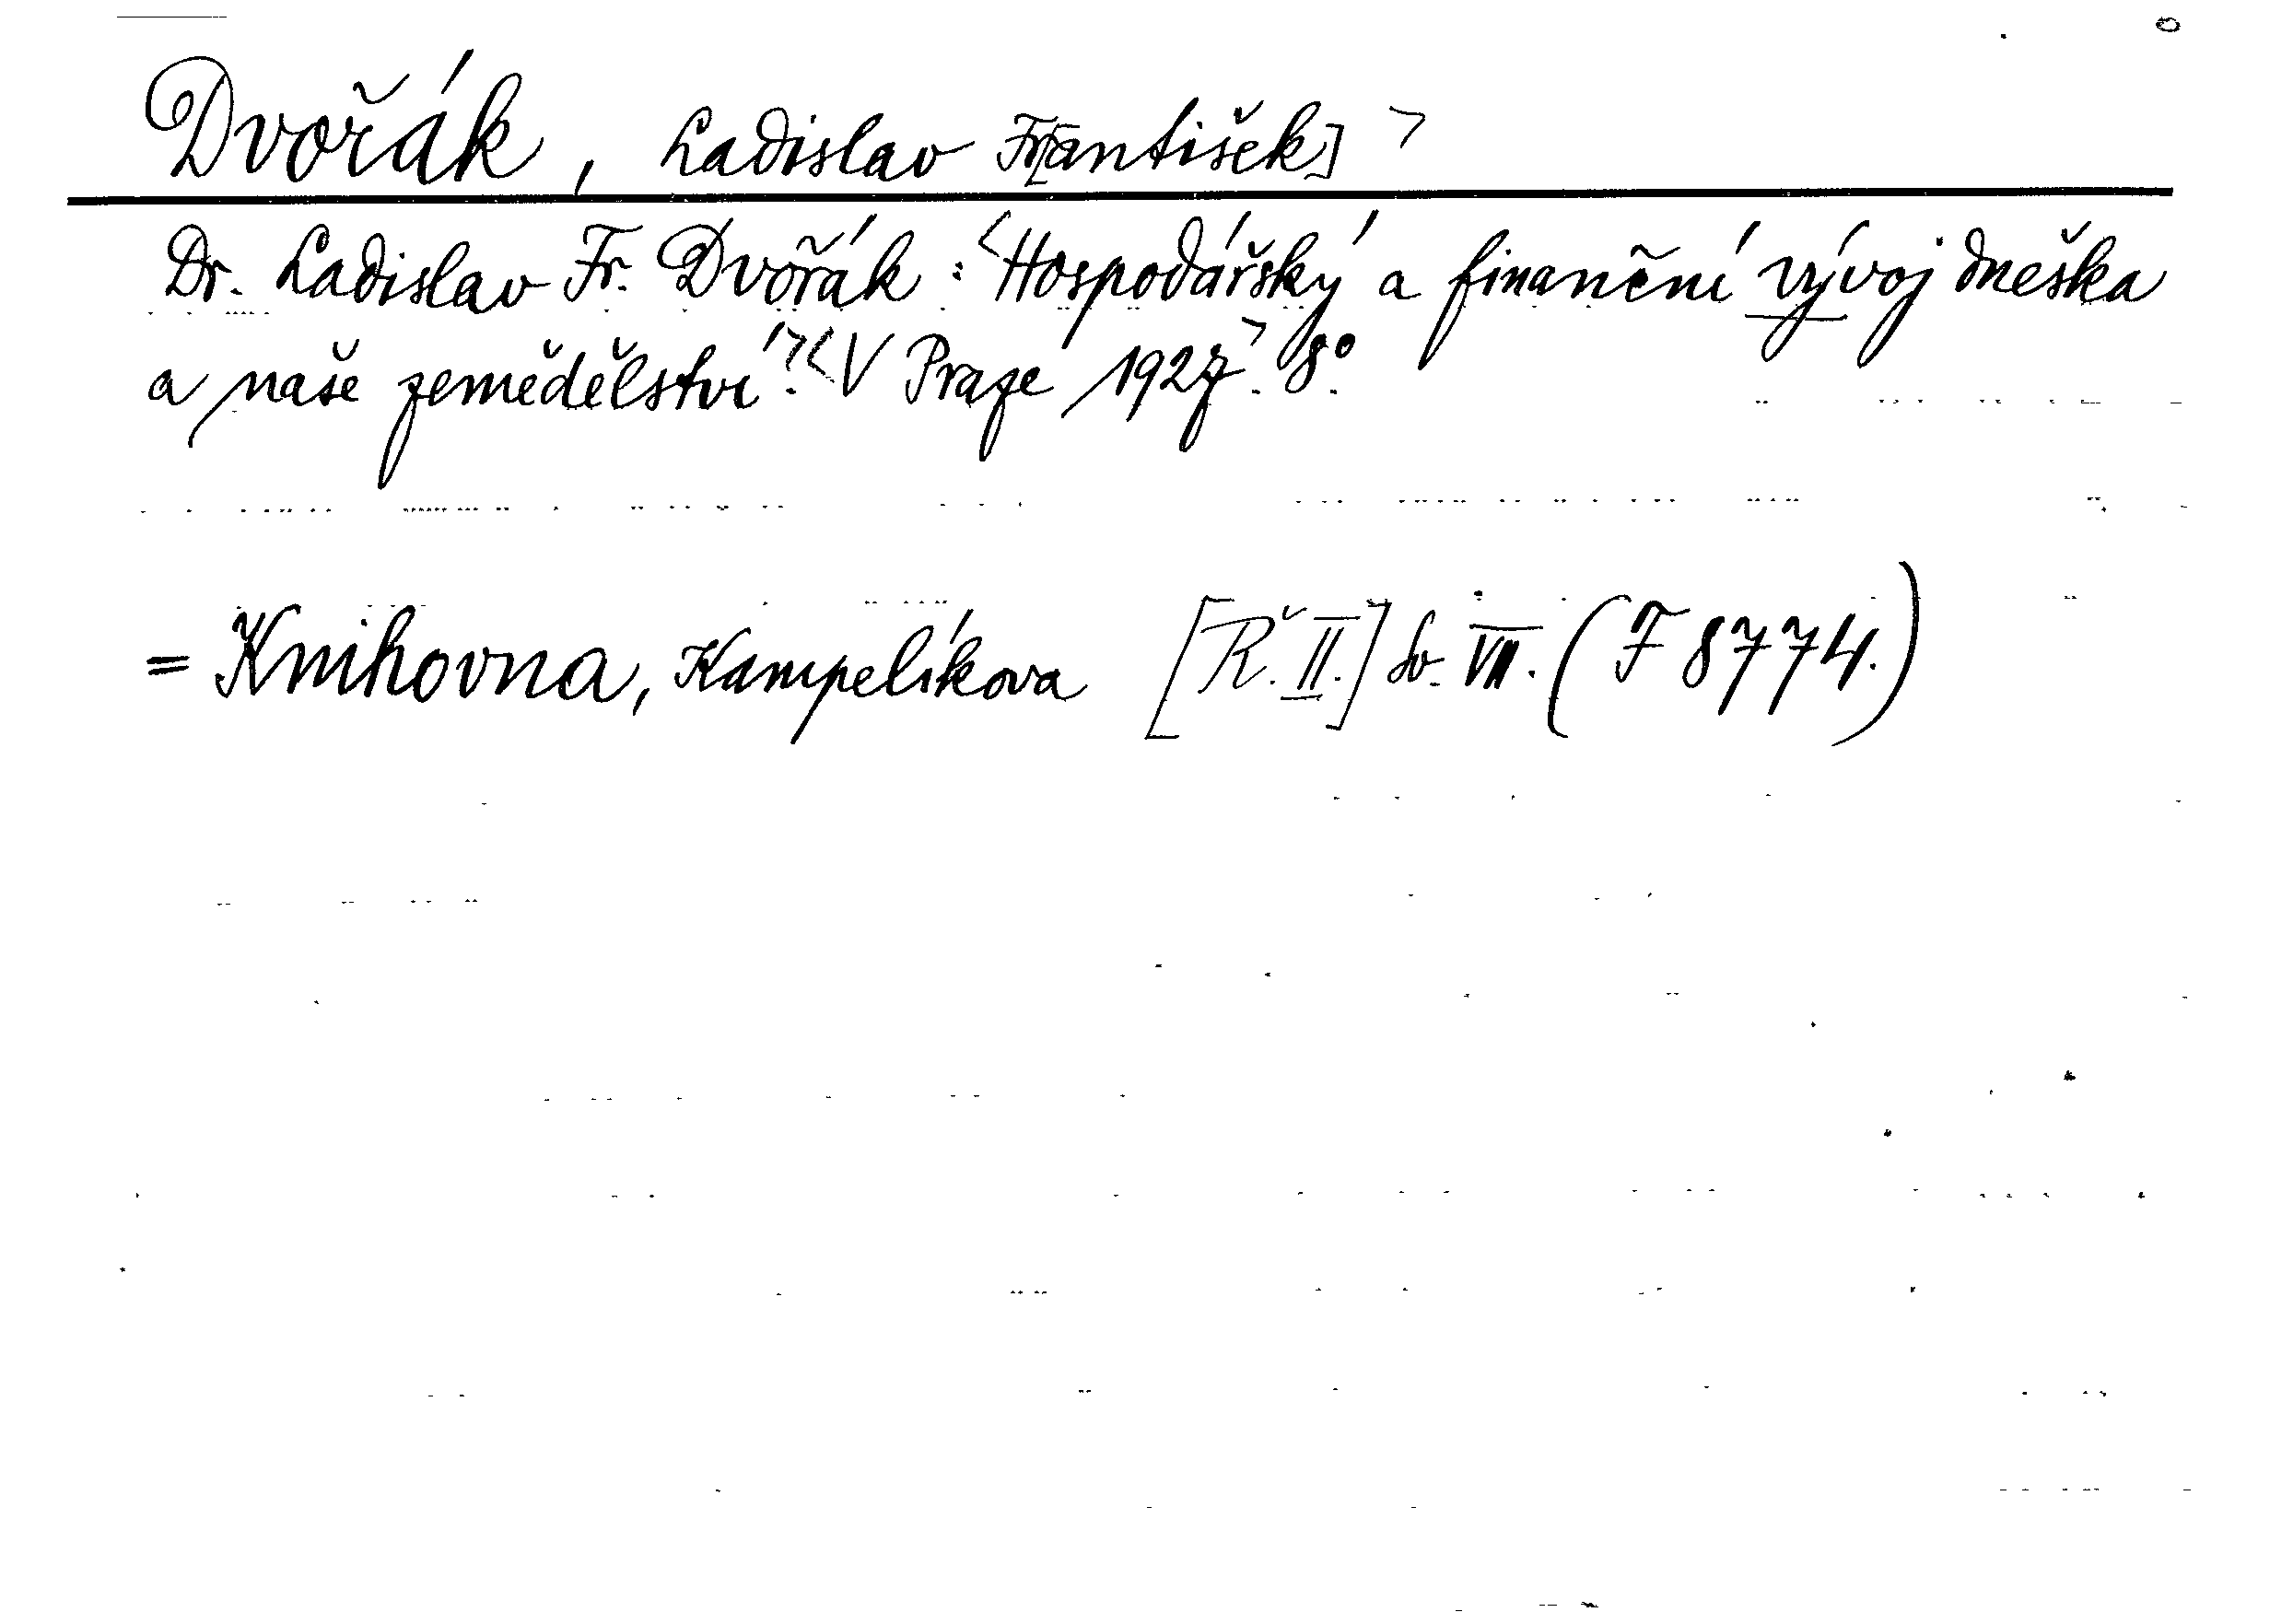 Dvořák, Ladislav Fr[antišek] >
Dr. Ladislav Fr. Dvořák: <Hospodářský a finanční vývoj dneška
a naše zemědělství.> <V Praze 1927>. 8°.
= Knihovna, Kampelíkova [Ř. II.] Sv. VII. (F 8774.)